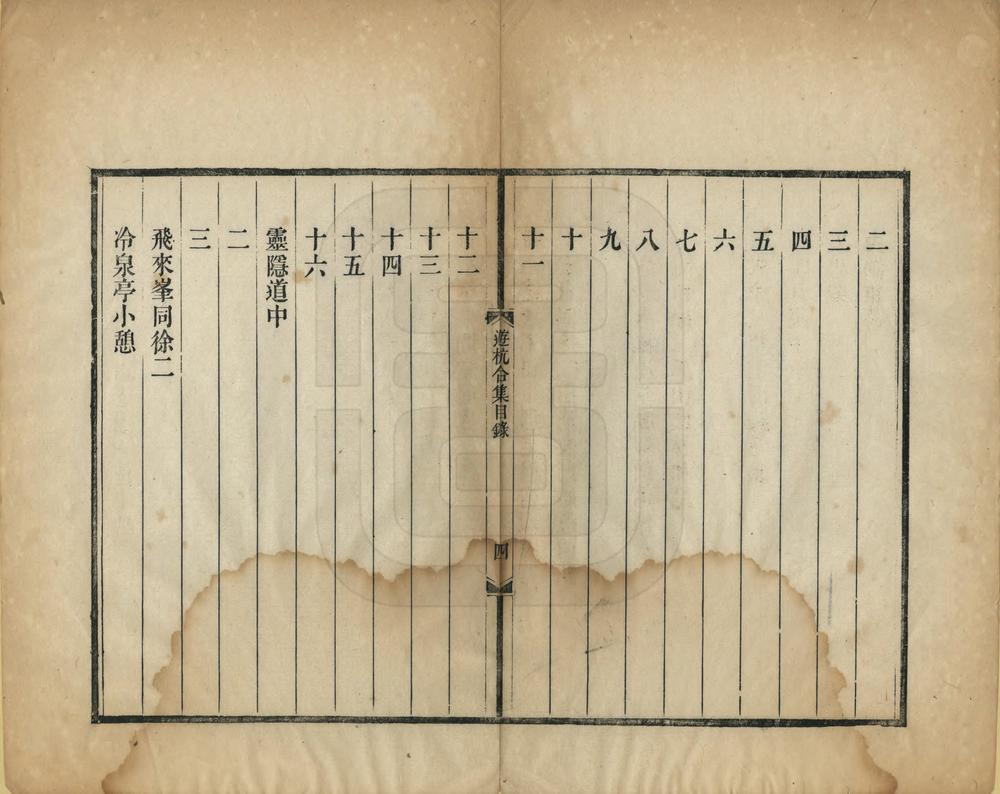 二
三
四
五
六
七
八
九
十
十一
遊杭合集目錄
四
十二
十三
十四
十五
十六
靈隱道中
二
三
飛來峯同徐二
冷泉亭小憩